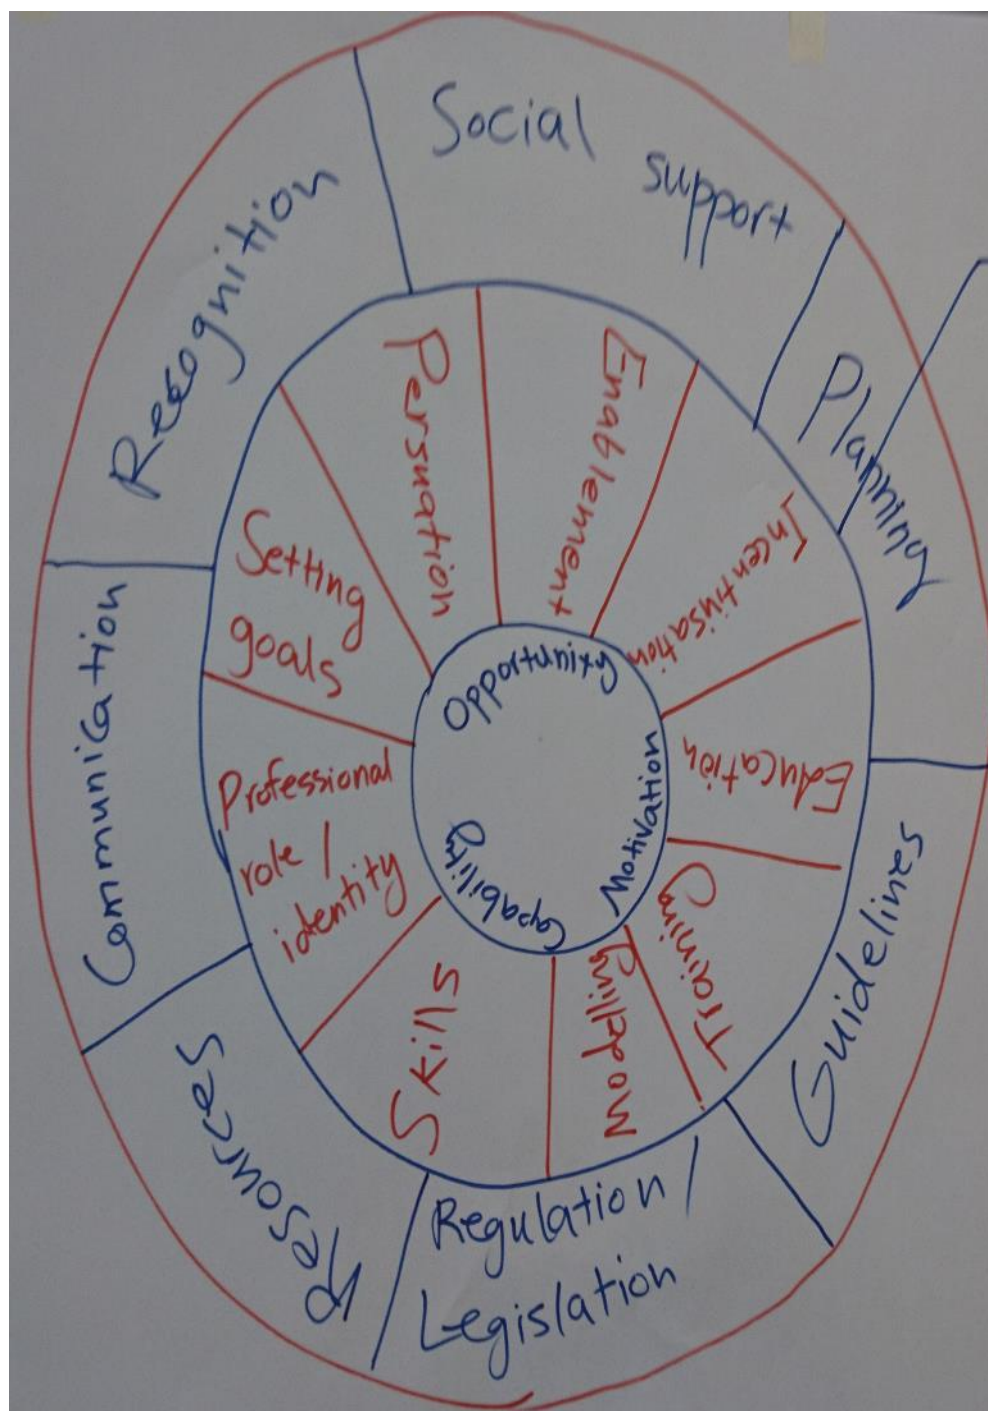 Social
support
Planning
Guidelines
Regulation /
Legislation
Resources
Communication
Recognition
Persuation
Enablement
Incentivisation
Education
Training
Modelling
Skills
Professional
role /
identity
Setting
goals
Opportunity
Motivation
Capability